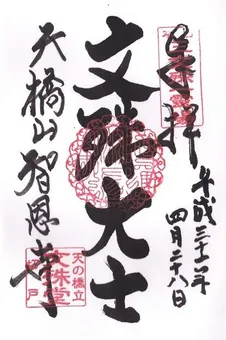 奉拝
平成三十一年
四月二十八日
文殊大士
天橋山智恩寺
天の橋立
文殊堂
切戸